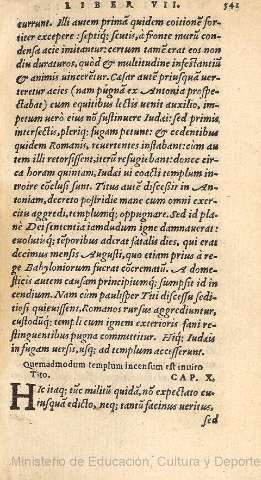 LIBER VII. 341
currunt. Illi autem primũ quidem coitionẽ for-
titer excepere: septiq; scutis, à fronte murũ con-
densa acie imitantur: certum tamẽ erat eos non
diu duraturos, quòd & multitudine infestantiũ
& animis uincerẽtur. Cæsar autẽ priusquã uer-
teretur acies (nam pugnã ex Antonia prospe-
ctabat) cum equitibus lectis uenit auxilio, im-
petum uerò eius nõ sustinuere Iudæi: sed primis
intersectis, pleriq; fugam petunt: & cedentibus
quidem Romanis, reuertentes instabant: cùm au
tem illi retorsissent, iterũ refugiebant: donec cir-
ca horam quintam, Iudæi ui coacti templum in-
troire cõclusi sunt. Titus autẽ discessit in An-
toniam, decreto postridie mane cum omni exer-
citu aggredi, templumq; oppugnare. Sed id pla-
nè Dei sententia iamdudum igne damnauerat:
euolutisq; tẽporibus aderat fatalis dies, qui erat
decimus mensis Augusti, quo etiam prius à re-
ge Babyloniorum fuerat cõcrematũ. A dome-
sticis autem causam principiumq; sumpsit id in
cendium. Nam cùm paulisper Titi discessu sedi-
tiosi quieuissent, Romanos rursus aggrediuntur,
custodũq; templi cum ignem exterioris fani re-
stinguentibus pugna committitur. Hiq; Iudæis
in fugam uersis, usq; ad templum accesserunt.
Quemadmodum templum incensum est inuito
Tito. CAP. X.
HIc itaq; tũc militũ quidã, nõ expectato cu
iusquã edicto, neq; tantũ facinus ueritus,
sed
Ministerio de Educación, Cultura y Deporte